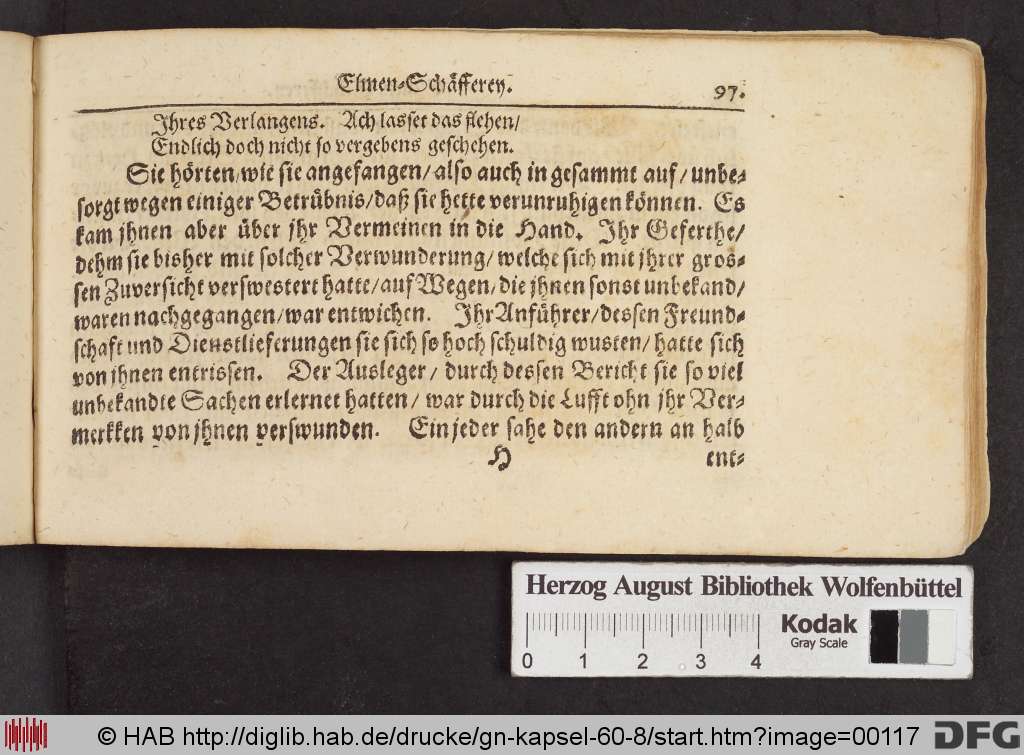 Elmen-Schäfferey. 97.
Ihres Verlangens. Ach lasset das flehen/
Endlich doch nicht so vergebens geschehen.
Sie hörten/wie sie angefangen/also auch in gesammt auf/unbe-
sorgt wegen einiger Betrübnis/daß sie hette verunruhigen können. Es
kam jhnen aber über jhr Vermeinen in die Hand. Ihr Geferthe/
dehm sie bisher mit solcher Verwunderung/welche sich mit jhrer gros-
sen Zuversicht verswestert hatte/auf Wegen/die jhnen sonst unbekand/
waren nachgegangen/war entwichen. Ihr Anführer/dessen Freund-
schaft und Dienstlieferungen sie sich so hoch schuldig wusten/hatte sich
von jhnen entrissen. Der Ausleger/durch dessen Bericht sie so viel
unbekandte Sachen erlernet hatten/war durch die Lufft ohn jhr Ver-
merkken von jhnen verswunden. Ein jeder sahe den andern an halb
H ent-
Herzog August Bibliothek Wolfenbüttel
0 1 2 3 4
Kodak
Gray Scale
© HAB http://diglib.hab.de/drucke/gn-kapsel-60-8/start.htm?image=00117
DFG